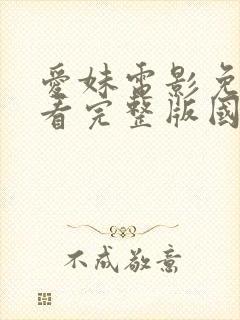 愛妹電影免
看完整版國
不成敬意